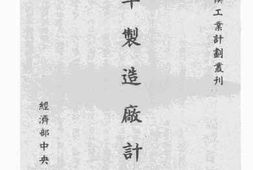 工業計劃叢刊
製造廠計
經濟部中央